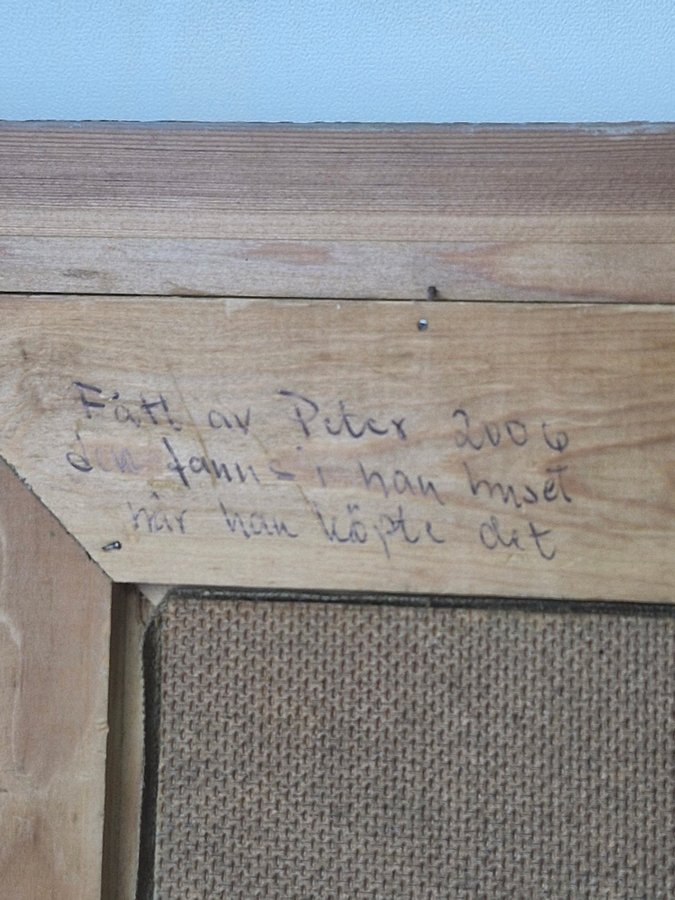 Fått av Peter 2006
den fanns i han huset
när han köpte det